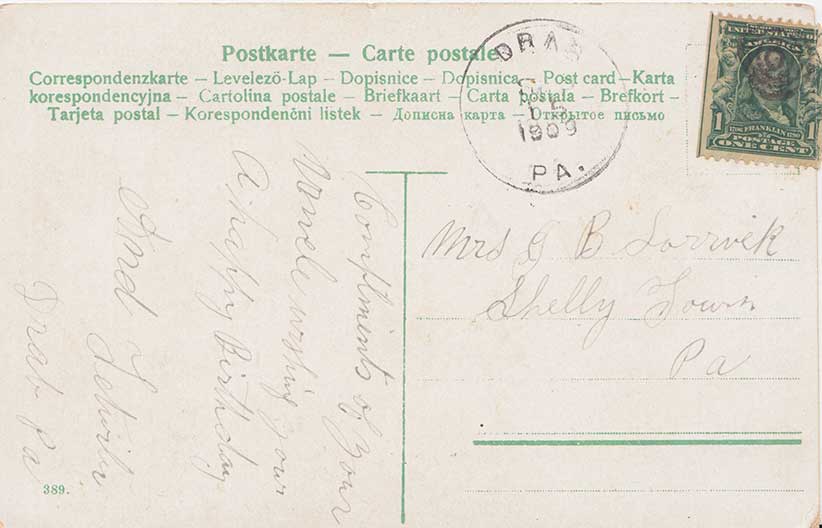 Postkarte — Carte postale
Correspondenzkarte – Levelezö-Lap – Dopisnice – Dopisnica – Post card – Karta
korespondencyjna – Cartolina postale – Briefkaart – Carta postala – Brefkort –
Tarjeta postal – Korespondenční listek – Дописна карта – Открытое письмо
DRAB
15
1909
PA.
AMERICA
FRANKLIN
POSTAGE
1 ONE CENT 1
Compliments of Your
Uncle wishing your
A happy Birthday
And
Drab Pa
Mrs B
Shelly Town
Pa
389.